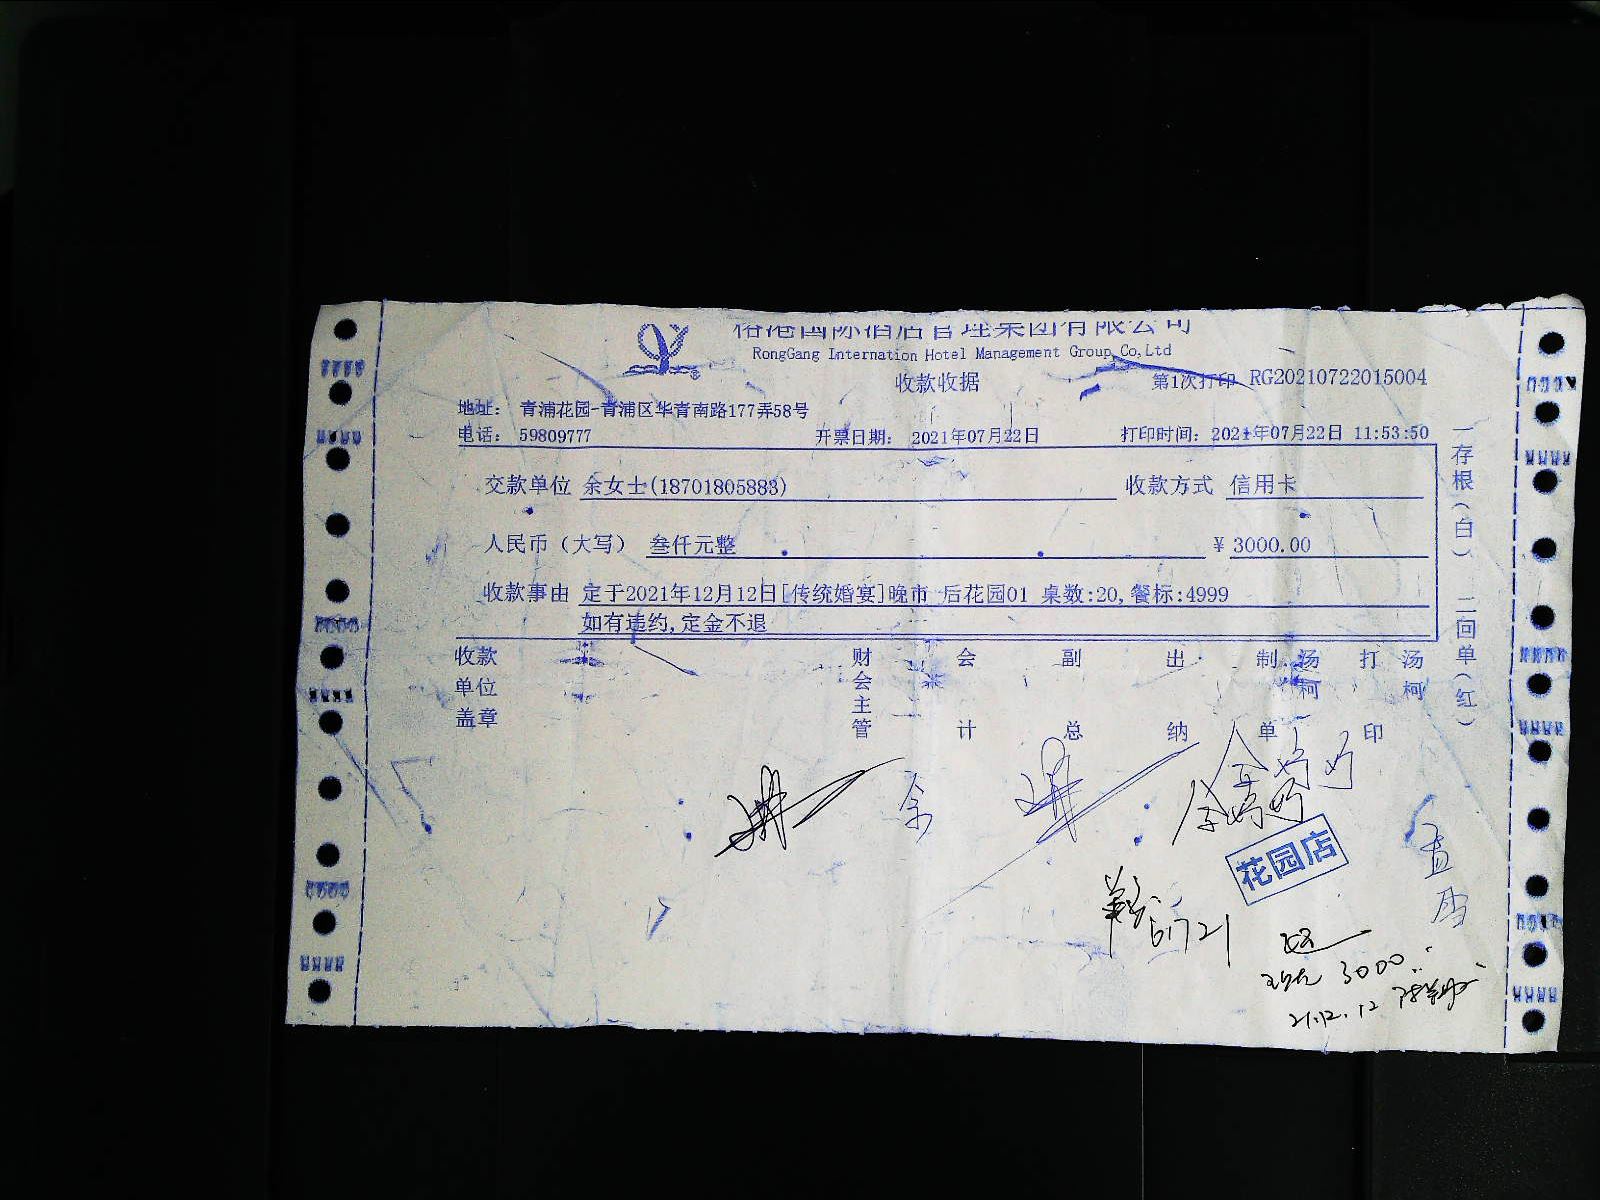 榕港国际酒店管理集团有限公司
RongGang Internation Hotel Management Group Co,Ltd
收款收据
第1次打印 RG20210722015004
地址: 青浦花园-青浦区华青南路177弄58号
电话: 59809777 开票日期: 2021年07月22日 打印时间: 2021年07月22日 11:53:50
交款单位 余女士(18701805883) 收款方式 信用卡
人民币（大写） 叁仟元整 ¥ 3000.00
收款事由 定于2021年12月12日[传统婚宴]晚市 后花园01 桌数:20,餐标:4999
如有违约,定金不退
收款单位盖章 财会主管 会计 副总 出纳 制单 汤柯 打印 汤柯
一存根(白) 二回单(红)
花园店
61721
3000
21.12.12